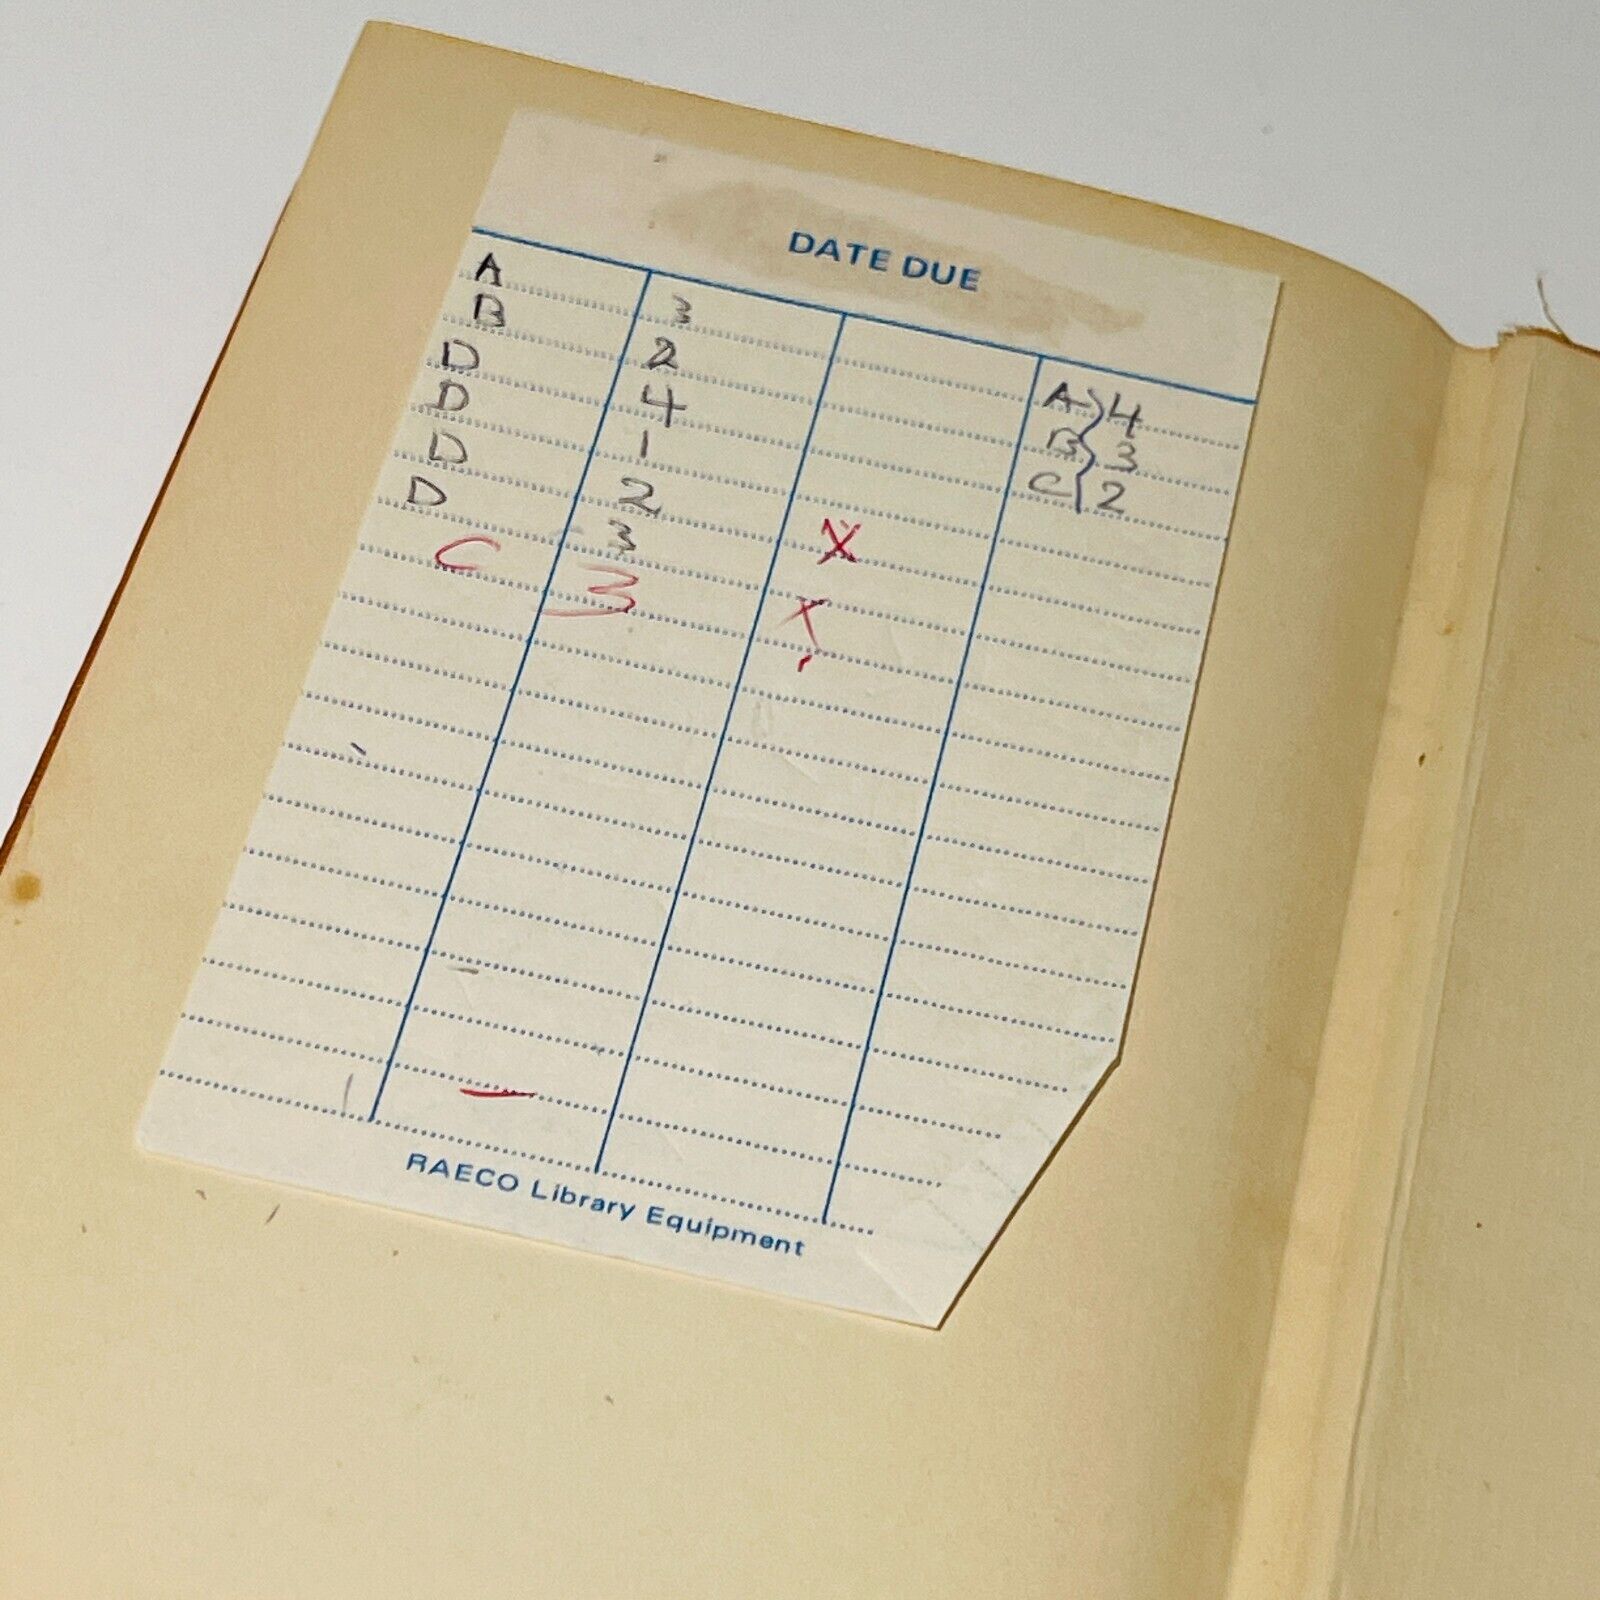 DATE DUE
A 3 A } 4
B 2 B } 3
D 4 C } 2
D 1
D 2 X
D 3
C 3 X
RAECO Library Equipment